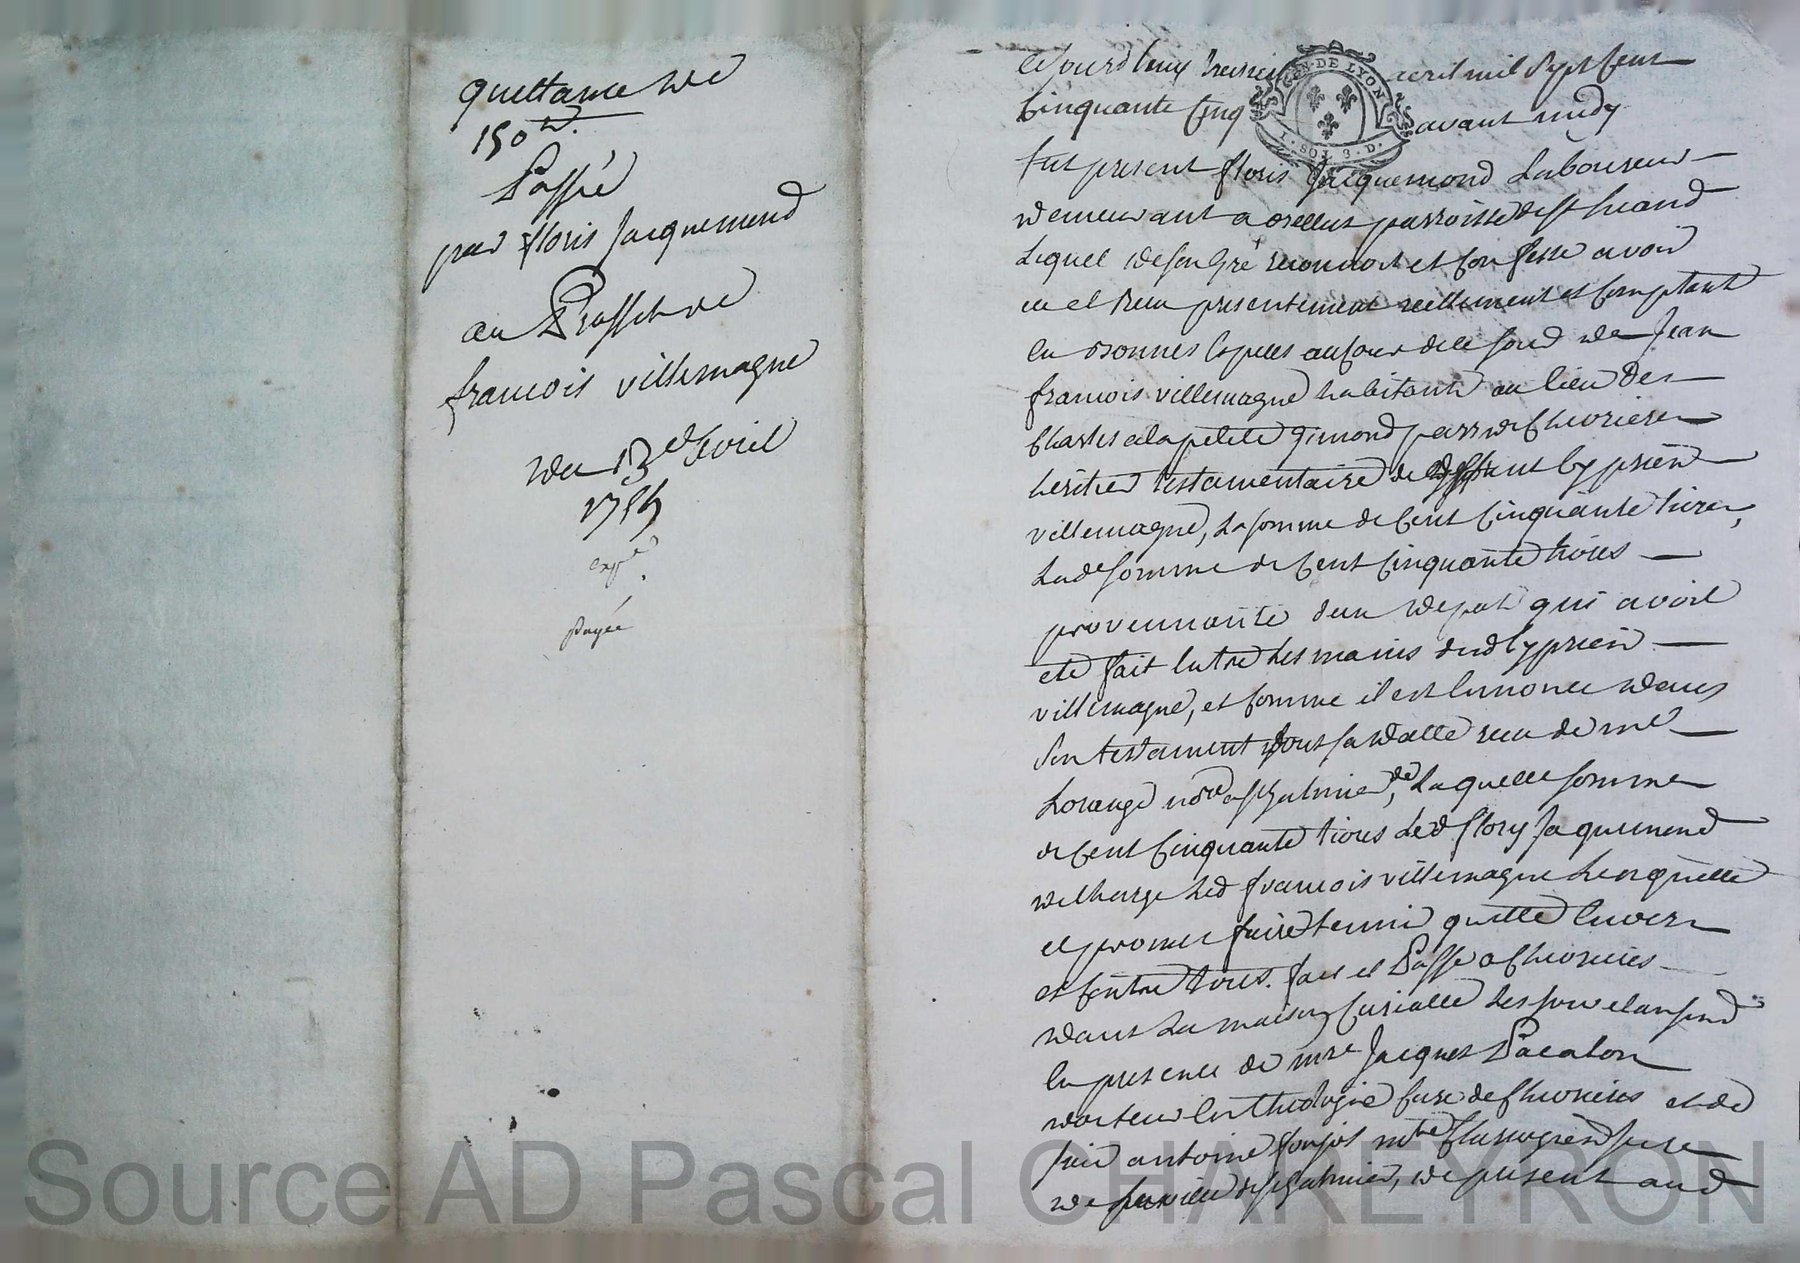 quittance de
150 ##.
Passé
par floris Jacquemond
au Proffit de
francois villemagne
du 13e avril
1755
expée
payée
GEN. DE LYON
1. SOL 3. D.
Cejourdhuy treizieme avril mil sept cent
Cinquante Cinq avant midy
fut present floris Jacquemond Laboureur
demeurant a parroisse de st heand
Lequel de son gré reconnoit et confesse avoir
eu et Receu presentement reellement et Comptant
en bonnes Espèces au Cour de ce jour de Jean
francois villemagne habitant au lieu des
Chartes a la petite gimond parr. de Chevrieres
héritier testamentaire de deffunt Cyprien
villemagne, La somme de Cent Cinquante livres,
Lade somme de Cent Cinquante livres
provennante d'un depot qui avoit
eté fait Entre Les mains dud Cyprien
villemagne, et Comme il est Ennoncé dans
son testament sous sa datte receu de me
Lorange nore a st galmier, de Laquelle somme
de Cent Cinquante livres Led flory Jaquemond
decharge Led francois villemagne Len quitte
et promet faire tenir quitte Envers
et Contre tous. fait et Passé a Chevrieres
dans La maison Curialle Les jour et an susd
En presence de mre Jacques Pacalon
docteur En theologie Curé de Chevrieres et de
sieur antoine mtre Chirurgien juré
de la ville de st galmier, de present aud
Source AD Pascal CHAREYRON